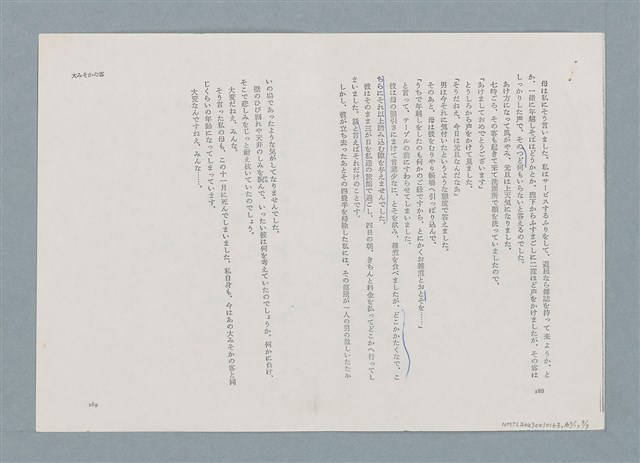 母は私にそう言いました。私はサービスするふりをして、退屈なら雑誌を持って来ようか、と
か、一緒に年越しそばはどうかとか、廊下からふすまごしに二度ほど声をかけましたが、その客は
しっかりした声で、そのつど何もいらないと答えるのでした。
あけ方になって風がやみ、元旦は上天気になりました。
七時ごろ、その客も起きて来て洗面所で顔を洗っていましたので、
「あけましておめでとうございます」
とうしろから声をかけて見ました。
「そうだねえ、今日は元旦なんだなあ」
男は今それに気付いたというような態度で答えました。
そのあと、母は彼をむりやり帳場へ引っぱり込んで、
「うちで年越しをしたのも何かのご縁ですから、とにかくお雑煮とおとそを……」
と言って、テーブルの前にすわらせてしまいました。
彼は母の強引さにまけて言葉少なに、とそを飲み、雑煮を食べましたが、どこかかたくなで、こ
ちらにそれ以上踏み込む隙を与えませんでした。
彼はそのまま三が日を私達の旅館で過ごし、四日の朝、きちんと料金を払ってどこかへ行ってし
まいました。話と言えばそれだけのことです。
しかし、彼が立ち去ったあとその四畳半を掃除した私には、その部屋が一人の男の激しいたたか
188
大みそかの客
いの場であったような気がしてなりませんでした。
壁のひび割れや天井のしみを睨んで、いったい彼は何を考えていたのでしょうか。何かに負け、
そこで悲しみをじっと耐え抜いていたのでしょう。
大変だねえ、みんな。
そう言った私の母も、この十一月に死んでしまいました。私自身も、今はあの大みそかの客と同
じくらいの年齢になってしまっています。
大変なんですねえ、みんな……。
189